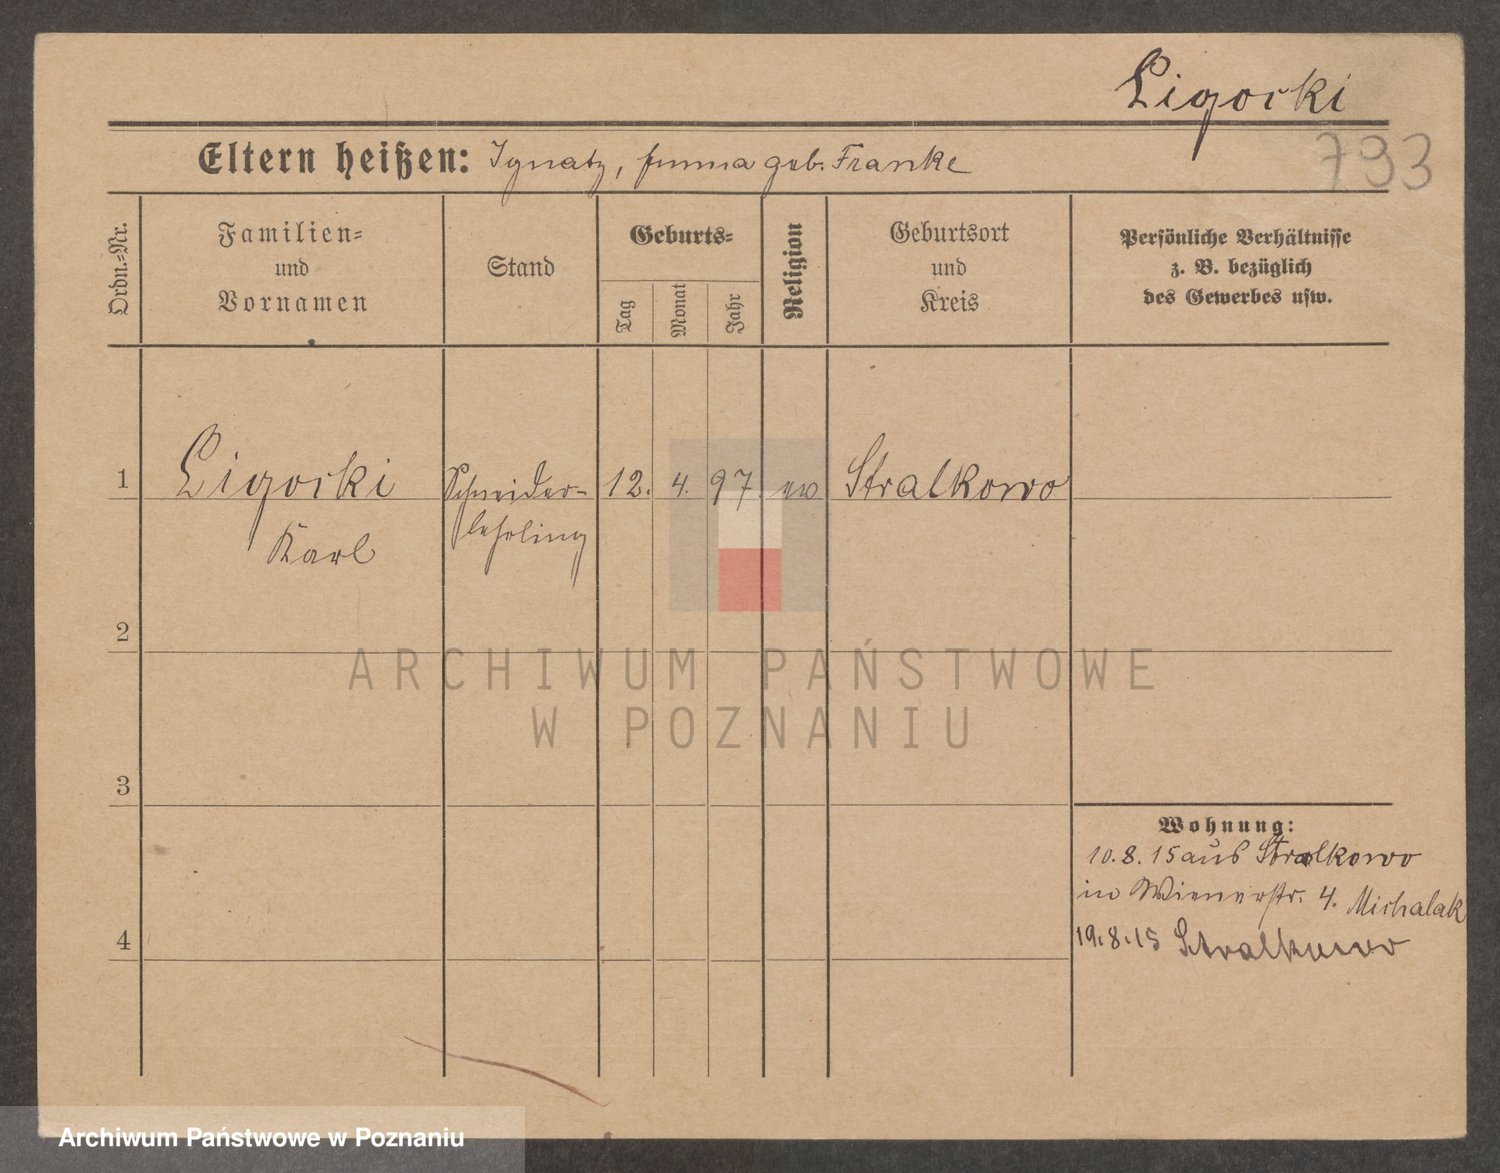 Ligocki
793
Eltern heißen: Ignatz, Emma geb. Franke
Ordn.=Nr.
Familien=
und
Vornamen
Stand
Geburts=
Tag
Monat
Jahr
Religion
Geburtsort
und
Kreis
Persönliche Verhältnisse
z. B. bezüglich
des Gewerbes usw.
1
Ligocki
Karl
Schneider-
lehrling
12.
4.
97
ev
Stralkowo
2
3
4
Wohnung:
10.8.15 aus Stralkowo
in Wienerstr. 4. Michalak
19.8.15 Stralkowo
ARCHIWUM PAŃSTWOWE
W POZNANIU
Archiwum Państwowe w Poznaniu